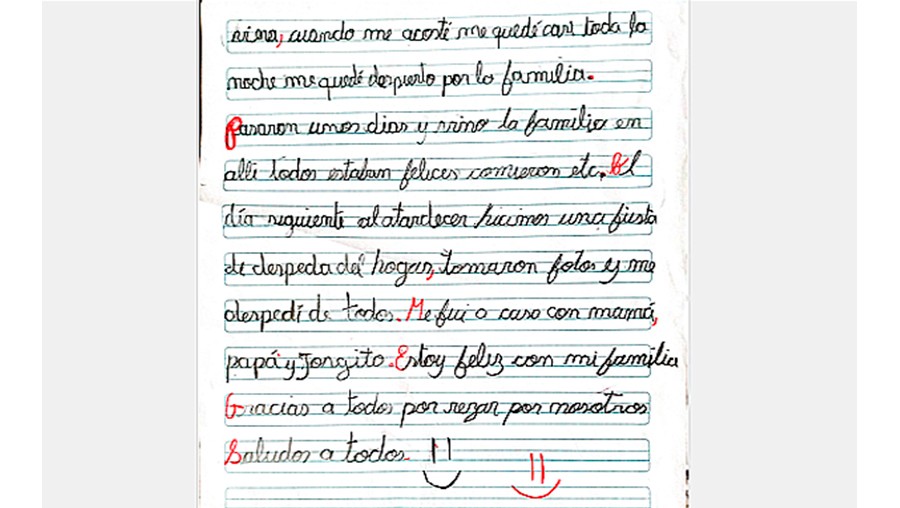 viera, cuando me acosté me quedé casi toda la
noche me quedé despierto por la familia.
Pasaron unos dias y vino la familia en
alli todos estaban felices comieron etc. El
día siguiente al atardecer hicimos una fiesta
de despeda del hogar, tomaron fotos y me
despedí de todos. Me fui a casa con mamá,
papá y Jorgito. Estoy feliz con mi familia
Gracias a todos por rezar por nosotros
Saludos a todos.